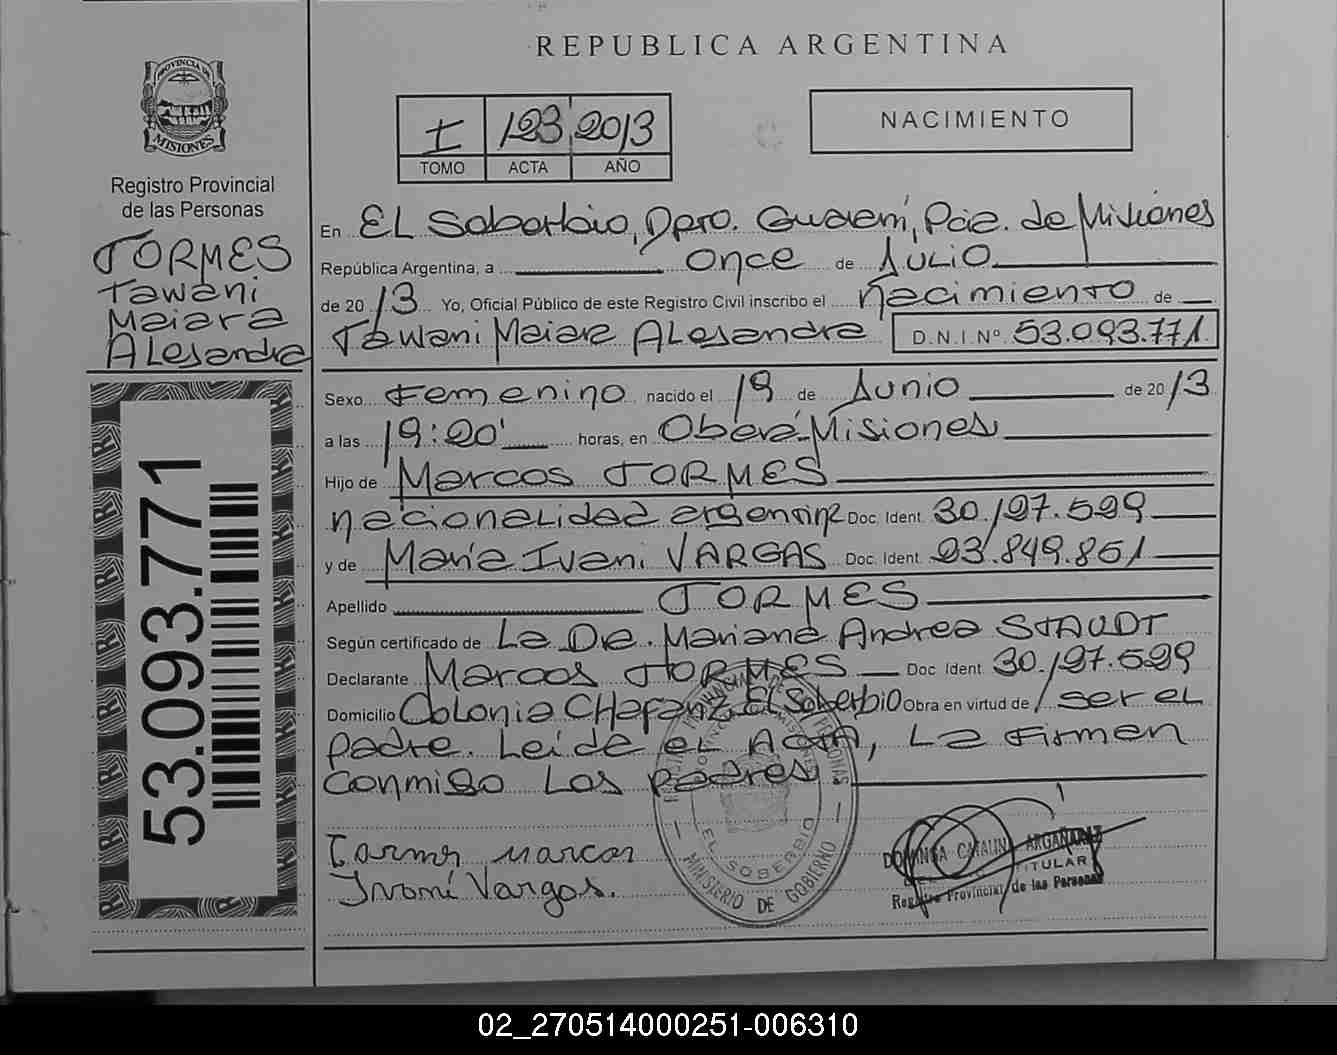 REPUBLICA ARGENTINA
PROVINCIA DE
MISIONES
Registro Provincial
de las Personas
TORMES
Tawani
Maiara
ALesandra
53.093.771
I 123 2013
TOMO ACTA AÑO
NACIMIENTO
En EL Soberbio, Dpto. Guaraní, Pcia. de Misiones
República Argentina, a Once de Julio
de 2013 Yo, Oficial Público de este Registro Civil inscribo el nacimiento de
Tawani Maiara ALesandra D.N.I.Nº 53.093.771
Sexo Femenino nacido el 19 de Junio de 2013
a las 19:20' horas, en Oberá-Misiones
Hijo de Marcos TORMES
nacionalidad argentina Doc. Ident. 30.197.599
y de María Ivani VARGAS Doc. Ident. 93.849.851
Apellido TORMES
Según certificado de La Dra. Mariana Andrea STAUDT
Declarante Marcos TORMES Doc Ident. 30.197.599
Domicilio Colonia CHafariz El Soberbio Obra en virtud de ser el
padre. Leída el Acta, La firman
conmigo Los padres
Tormes Marcos
Ivani Vargas.
EL SOBERBIO
MINISTERIO DE GOBIERNO
DOMINGA CATALINA ARGAÑARAZ
TITULAR
Registro Provincial de las Personas
02_270514000251-006310